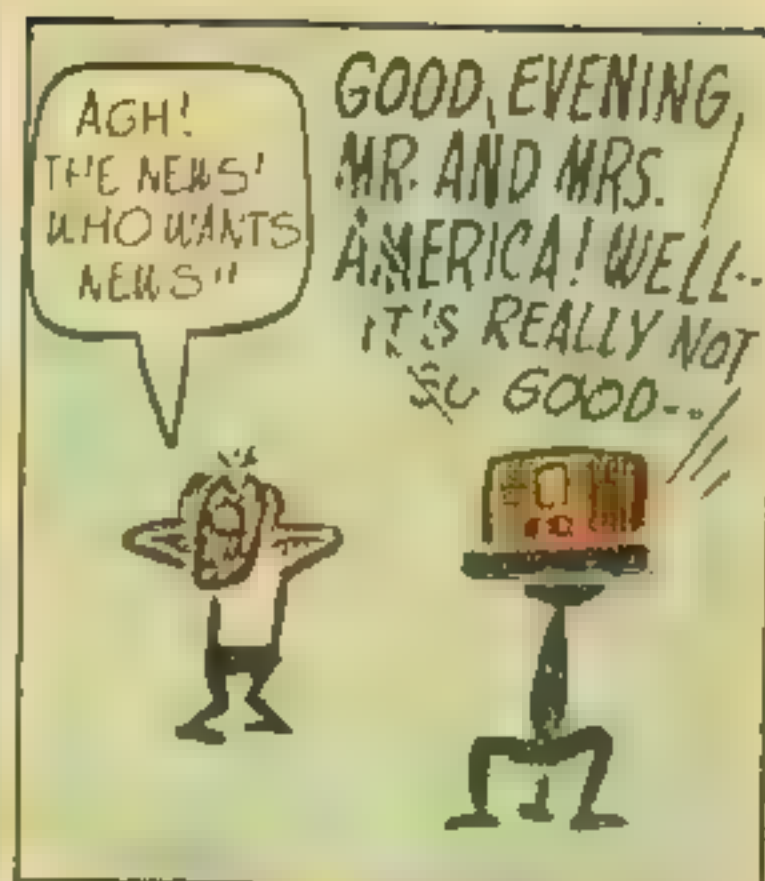 AGH!
THE NEWS!
WHO WANTS
NEWS!!
GOOD, EVENING,
MR. AND MRS.
AMERICA! WELL--
IT'S REALLY NOT
SO GOOD--